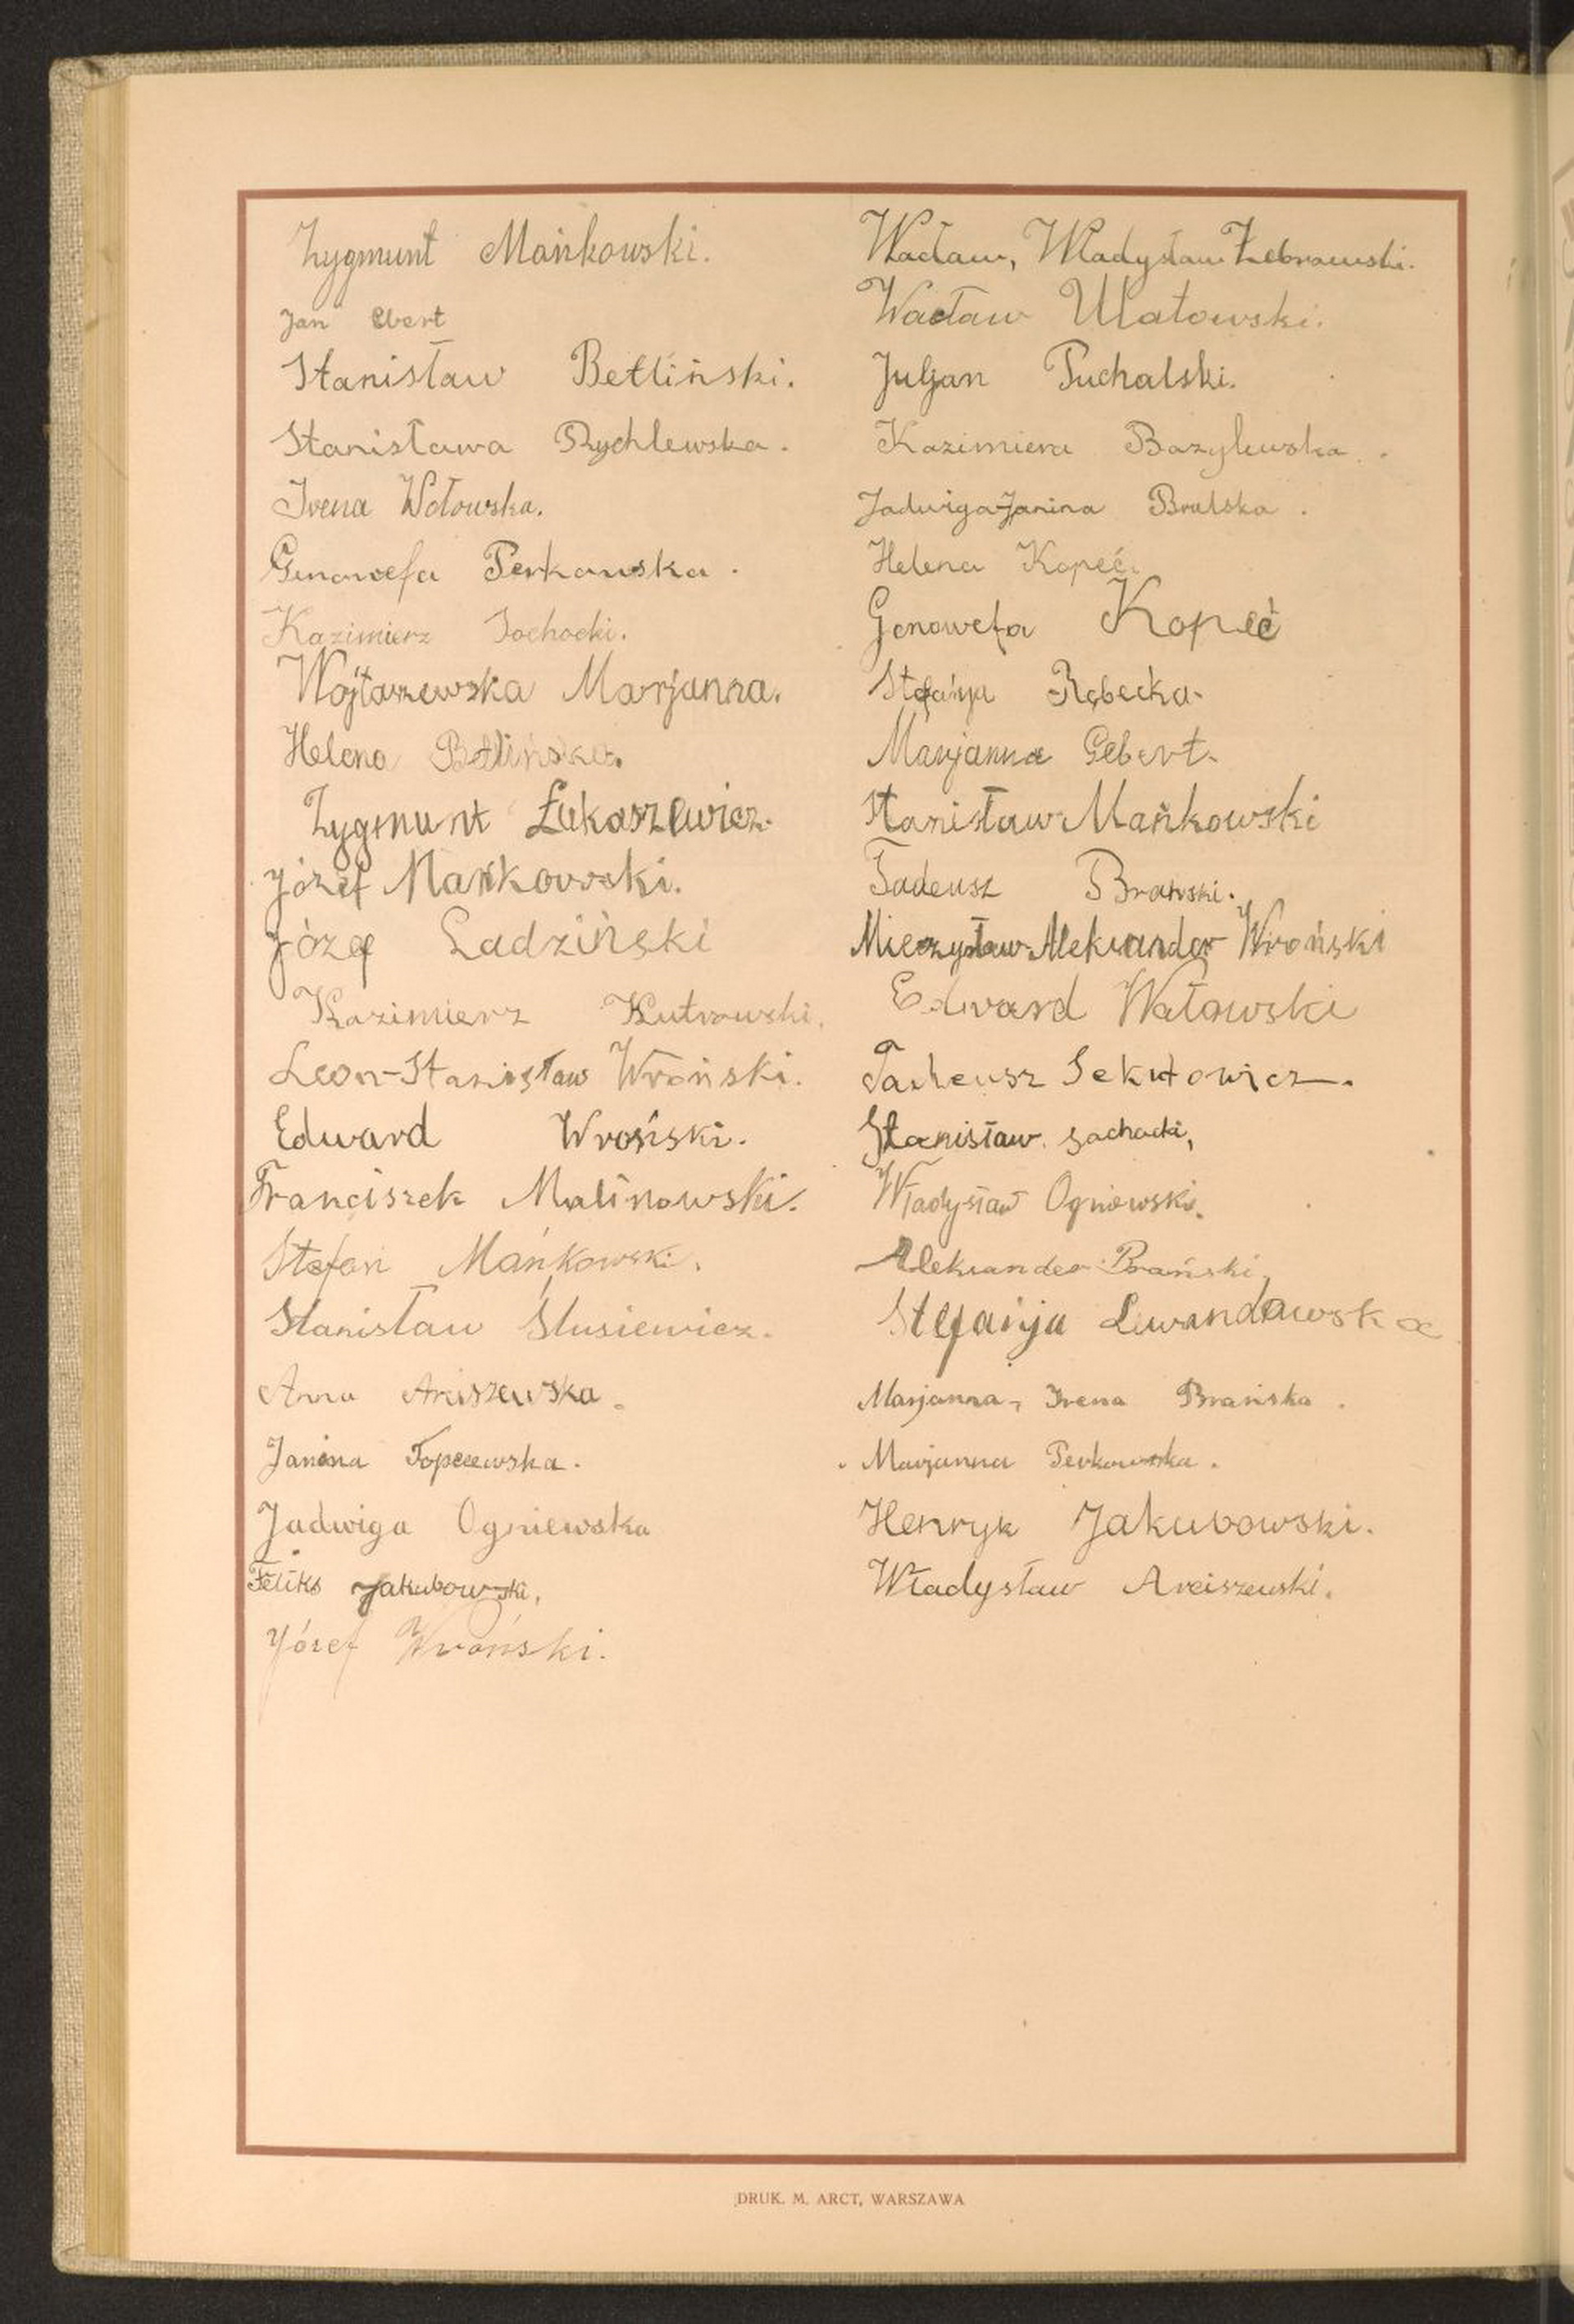 Zygmunt Mańkowski.
Jan Ebert
Stanisław Betliński.
Stanisława Rychlewska.
Irena Wołowska.
Genowefa Perkowska.
Kazimierz Sochocki.
Wojtaszewska Marjanna.
Helena Betlińska.
Zygmunt Łukaszewicz.
Józef Mańkowski.
Józef Ladziński
Kazimierz Kutrowski.
Leon-Stanisław Wroński.
Edward Wroński.
Franciszek Malinowski.
Stefan Mańkowski.
Stanisław Ślusiewicz.
Anna Arciszewska.
Janina
Jadwiga Ogniewska
Feliks Jakubowski,
Józef Wroński.
Wacław, Władysław Żebrowski.
Wacław Ulatowski.
Juljan Puchalski.
Kazimiera Bazylewska.
Jadwiga Janina
Helena Kopeć.
Genowefa Kopeć
Stefanja Rębecka.
Marjanna Gebert.
Stanisław Mańkowski
Tadeusz Brański.
Mieczysław-Aleksander Wroński
Edward Wołowski
Tadeusz Sekutowicz.
Stanisław Sachocki,
Władysław Ogniewski.
Aleksander Brański,
Stefanja Lewandowska
Marjanna, Irena Brańska.
Marjanna Perkowska.
Henryk Jakubowski.
Władysław Arciszewski.
DRUK. M. ARCT, WARSZAWA